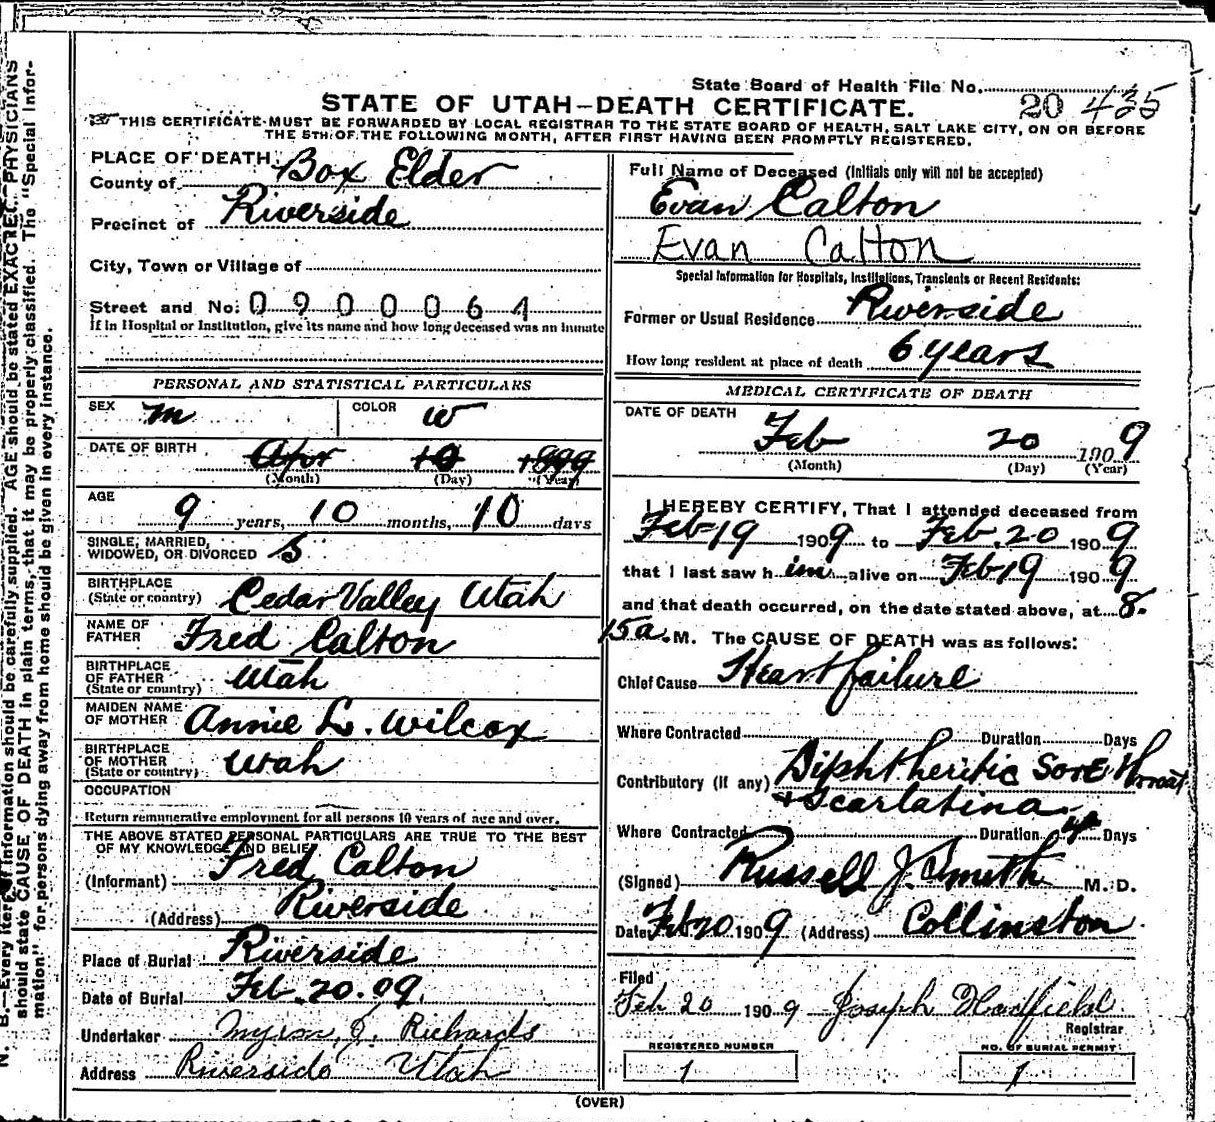 State Board of Health File No. 20 435
STATE OF UTAH—DEATH CERTIFICATE.
THIS CERTIFICATE MUST BE FORWARDED BY LOCAL REGISTRAR TO THE STATE BOARD OF HEALTH, SALT LAKE CITY, ON OR BEFORE
THE 5TH OF THE FOLLOWING MONTH, AFTER FIRST HAVING BEEN PROMPTLY REGISTERED.
PLACE OF DEATH:
County of Box Elder
Precinct of Riverside
City, Town or Village of
Street and No: 0900064
If in Hospital or Institution, give its name and how long deceased was an inmate
PERSONAL AND STATISTICAL PARTICULARS
SEX m COLOR w
DATE OF BIRTH Apr 10 1899
(Month) (Day) (Year)
AGE 9 years, 10 months, 10 days
SINGLE, MARRIED,
WIDOWED, OR DIVORCED S
BIRTHPLACE
(State or country) Cedar Valley Utah
NAME OF
FATHER Fred Calton
BIRTHPLACE
OF FATHER
(State or country) Utah
MAIDEN NAME
OF MOTHER Annie L. Wilcox
BIRTHPLACE
OF MOTHER
(State or country) Utah
OCCUPATION
Return remunerative employment for all persons 10 years of age and over.
THE ABOVE STATED PERSONAL PARTICULARS ARE TRUE TO THE BEST
OF MY KNOWLEDGE AND BELIEF
(Informant) Fred Calton
(Address) Riverside
Place of Burial Riverside
Date of Burial Feb. 20. 09.
Undertaker Myron J. Richards
Address Riverside Utah
Full Name of Deceased (Initials only will not be accepted)
Evan Calton
Evan Calton
Special Information for Hospitals, Institutions, Transients or Recent Residents:
Former or Usual Residence Riverside
How long resident at place of death 6 years
MEDICAL CERTIFICATE OF DEATH
DATE OF DEATH
Feb 20 1909
(Month) (Day) (Year)
I HEREBY CERTIFY, That I attended deceased from
Feb 19 1909 to Feb. 20 1909
that I last saw him alive on Feb 19 1909
and that death occurred, on the date stated above, at 8.
15 a. M. The CAUSE OF DEATH was as follows:
Chief Cause Heart failure
Where Contracted Duration Days
Contributory (if any) Diphtheritic Sore throat
+ Scarlatina
Where Contracted Duration Days
(Signed) Russell J. Smith M. D.
Date Feb 20 1909 (Address) Collinston
Filed
Feb 20 1909 Joseph Hadfield
Registrar
REGISTERED NUMBER NO. OF BURIAL PERMIT
1 1
(OVER)
N. B.—Every item of information should be carefully supplied. AGE should be stated EXACTLY. PHYSICIANS
should state CAUSE OF DEATH in plain terms, that it may be properly classified. The "Special Infor-
mation" for persons dying away from home should be given in every instance.